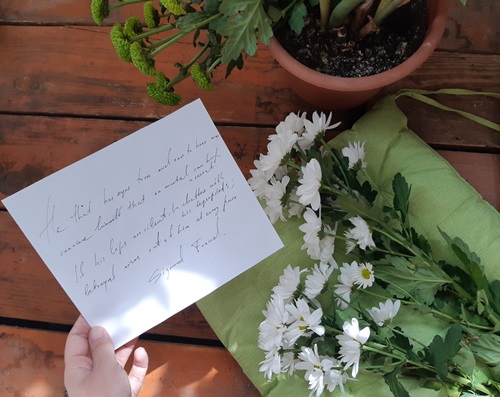 He that has eyes to see and ears to hear may
convince himself that no mortal can keep
a secret.
If his lips are silent, he chatters with
his fingertips;
betrayal oozes out of him at every pore
Sigmund Freud.